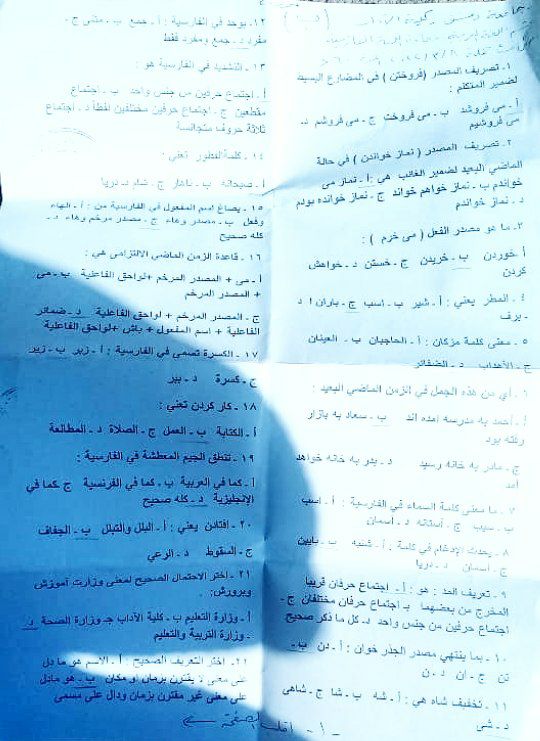 ١. تصريف المصدر (فروختن) في المضارع البسيط
لضمير المتكلم :
أ- مى فروشد ب- مى فروخت ج- مى فروشم د-
مى فروشيم
٢. تصريف المصدر ( نماز خواندن ) في حالة
الماضي البعيد لضمير الغائب هي : أ- نماز مى
خواندم ب- نماز خواهم خواند ج- نماز خوانده بودم
د- نماز خواندم
٢- ما هو مصدر الفعل ( مى خرم ) :
أ- خوردن ب- خريدن ج- خستن د- خواهش
كردن
٤ . المطر يعني : أ- شير ب- اسب ج- باران د
- برف
٥ . معنى كلمة مزكان : أ- الحاجبان ب- العينان
ج- الأهداب د- الضفائر
٦ . أي من هذه الجمل في الزمن الماضي البعيد :
أ- أحمد به مدرسه آمده اند ب- سعاد به بازار
رفته بود
ج- مادر به خانه رسيد د- پدر به خانه خواهد
آمد
٧ . ما معنى كلمة السماء في الفارسية : أ- اسب
ب- سيب ج- آستانه د- آسمان
٨ . يحدث الإدغام في كلمة : أ- شنبه ب- پايين
ج- آسمان د- دريا
٩ . تعريف المد : هو : أ- اجتماع حرفان قريبا
المخرج من بعضهما ب- اجتماع حرفان مختلفان ج-
اجتماع حرفين من جنس واحد د- كل ما ذكر صحيح
١٠ . بما ينتهي مصدر الجذر خوان : أ- دن ب-
تن ج- ان د- ن
١١ . تخفيف شاه هي : أ- شه ب- شا ج- شاهى
د- شى
١٢. يوجد في الفارسية : أ- جمع ب- مثنى ج-
مفرد د- جمع ومفرد فقط
١٣ . التشديد في الفارسية هو :
أ- اجتماع حرفين من جنس واحد ب- اجتماع
مقطعين ج- اجتماع حرفين مختلفين لفظاً د- اجتماع
ثلاثة حروف متجانسة
١٤ . كلمة الفطور تعني :
أ- صبحانه ب- ناهار ج- شام د- دريا
١٥ . يصاغ اسم المفعول في الفارسية من : أ- الهاء
وفعل ب- مصدر وهاء ج- مصدر مرخم وهاء د-
كله صحيح
١٦ . قاعدة الزمن الماضي الالتزامي هي :
أ- مى + المصدر المرخم + لواحق الفاعلية ب- مى
+ المصدر المرخم
ج- المصدر المرخم + لواحق الفاعلية د- ضمائر
الفاعلية + اسم المفعول + باش + لواحق الفاعلية
١٧ . الكسرة تسمى في الفارسية : أ- زبر ب- زير
ج- كسرة د- بير
١٨ . كار كردن تعني :
أ- الكتابة ب- العمل ج- الصلاة د- المطالعة
١٩ . تنطق الجيم المعطشة في الفارسية :
أ- كما في العربية ب- كما في الفرنسية ج- كما في
الإنجليزية د- كله صحيح
٢٠ . افتادن يعني : أ- البلل والتبلل ب- الجفاف
ج- السقوط د- الوعي
٢١ . اختر الاحتمال الصحيح لمعنى وزارت آموزش
وپرورش :
أ- وزارة التعليم ب- كلية الآداب ج- وزارة الصحة د
- وزارة التربية والتعليم
٢١ . اختر التعريف الصحيح : أ- الاسم هو ما دل
على معنى لا يقترن بزمان أو مكان ب- هو مادل
على معنى غير مقترن بزمان ودال على مسمى